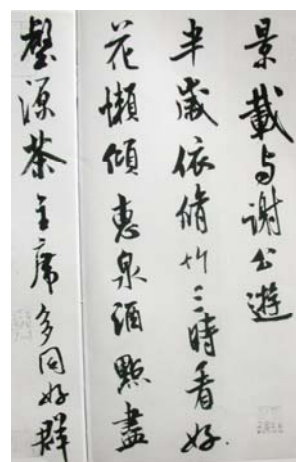 景载与谢公遊
半歲依脩竹三時看好
花懶傾惠泉酒點盡
壑源茶主席多同好群